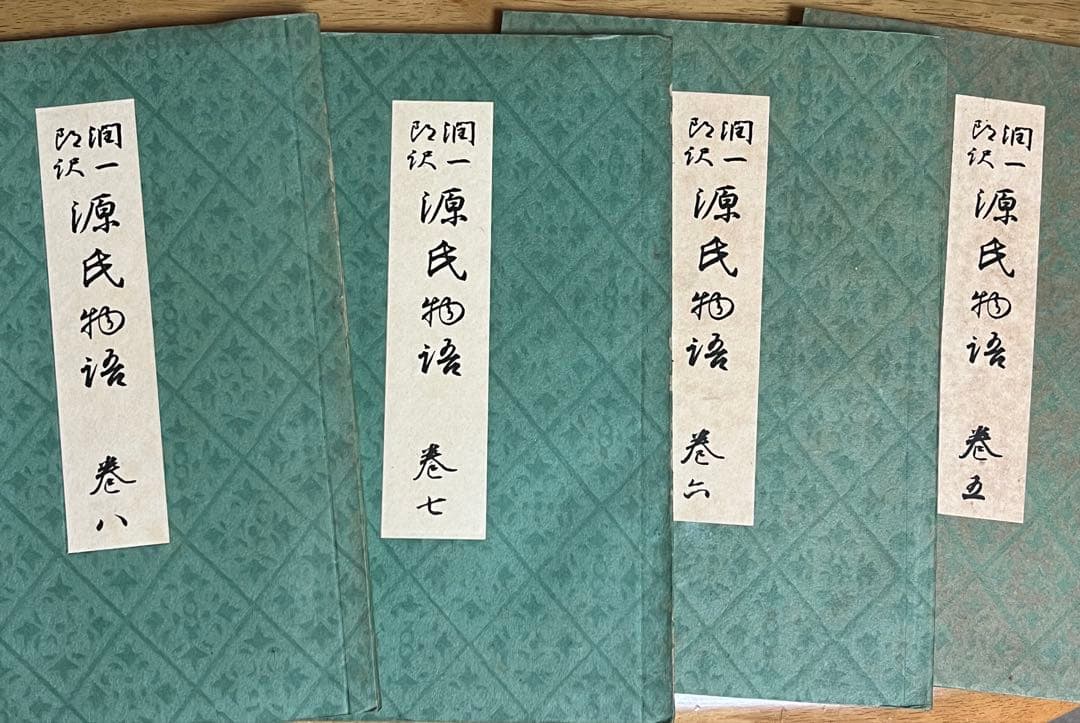 潤一
郎訳
源氏物語
巻八
潤一
郎訳
源氏物語
巻七
潤一
郎訳
源氏物語
巻六
潤一
郎訳
源氏物語
巻五